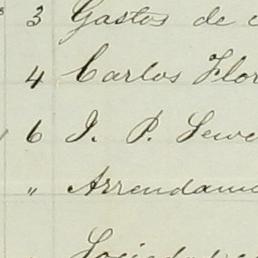 3 Gastos de
4 Carlos Flor
6 J. P. Sewe
" Arrendam